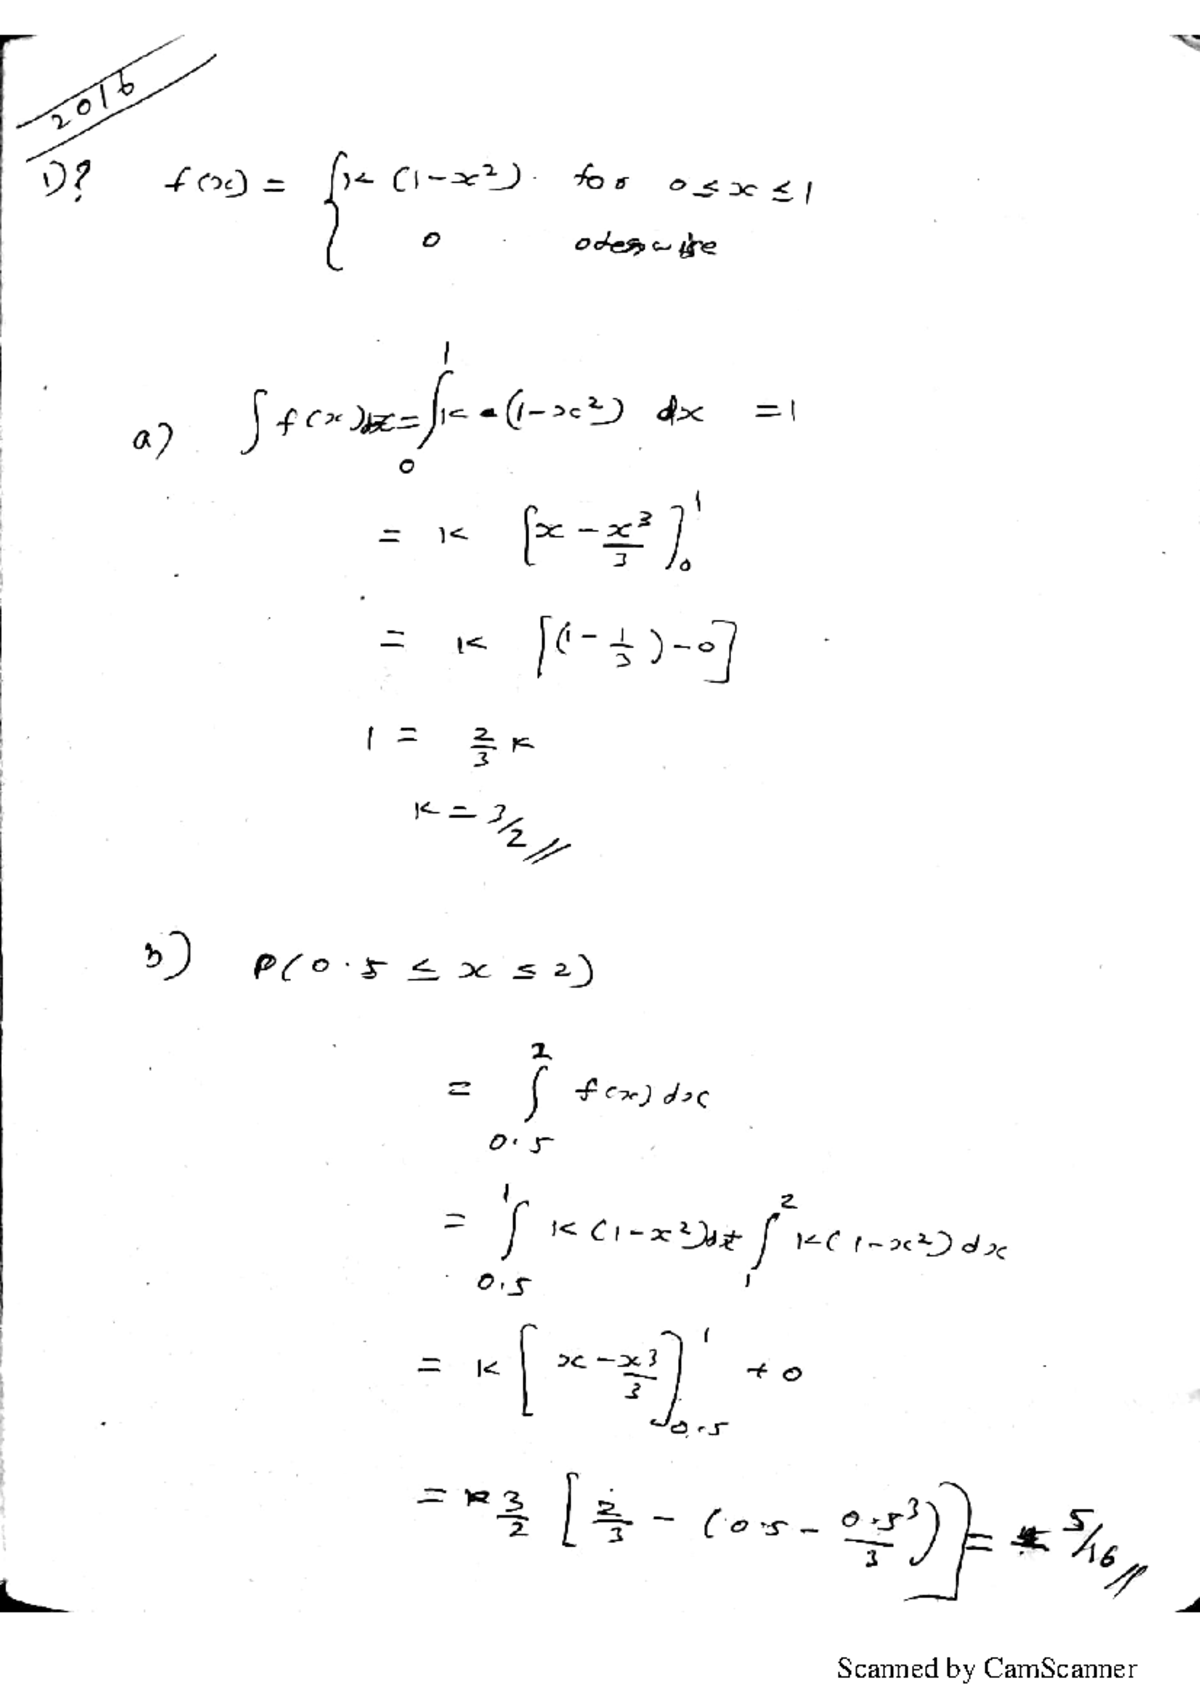 2016
1)? f(x) = { K (1-x²). for 0 ≤ x ≤ 1
0 otherwise
a) ∫ f(x)dx = ∫₀¹ K (1-x²) dx = 1
= K [x - x³/3]₀¹
= K [(1 - 1/3) - 0]
1 = 2/3 K
K = 3/2 //
b) P(0.5 ≤ x ≤ 2)
= ∫₀.₅² f(x) dx
= ∫₀.₅¹ K(1-x²)dx + ∫₁² K(1-x²) dx
= K [x - x³/3]₀.₅¹ + 0
= 3/2 [2/3 - (0.5 - 0.5³/3)] = 5/16 //
Scanned by CamScanner